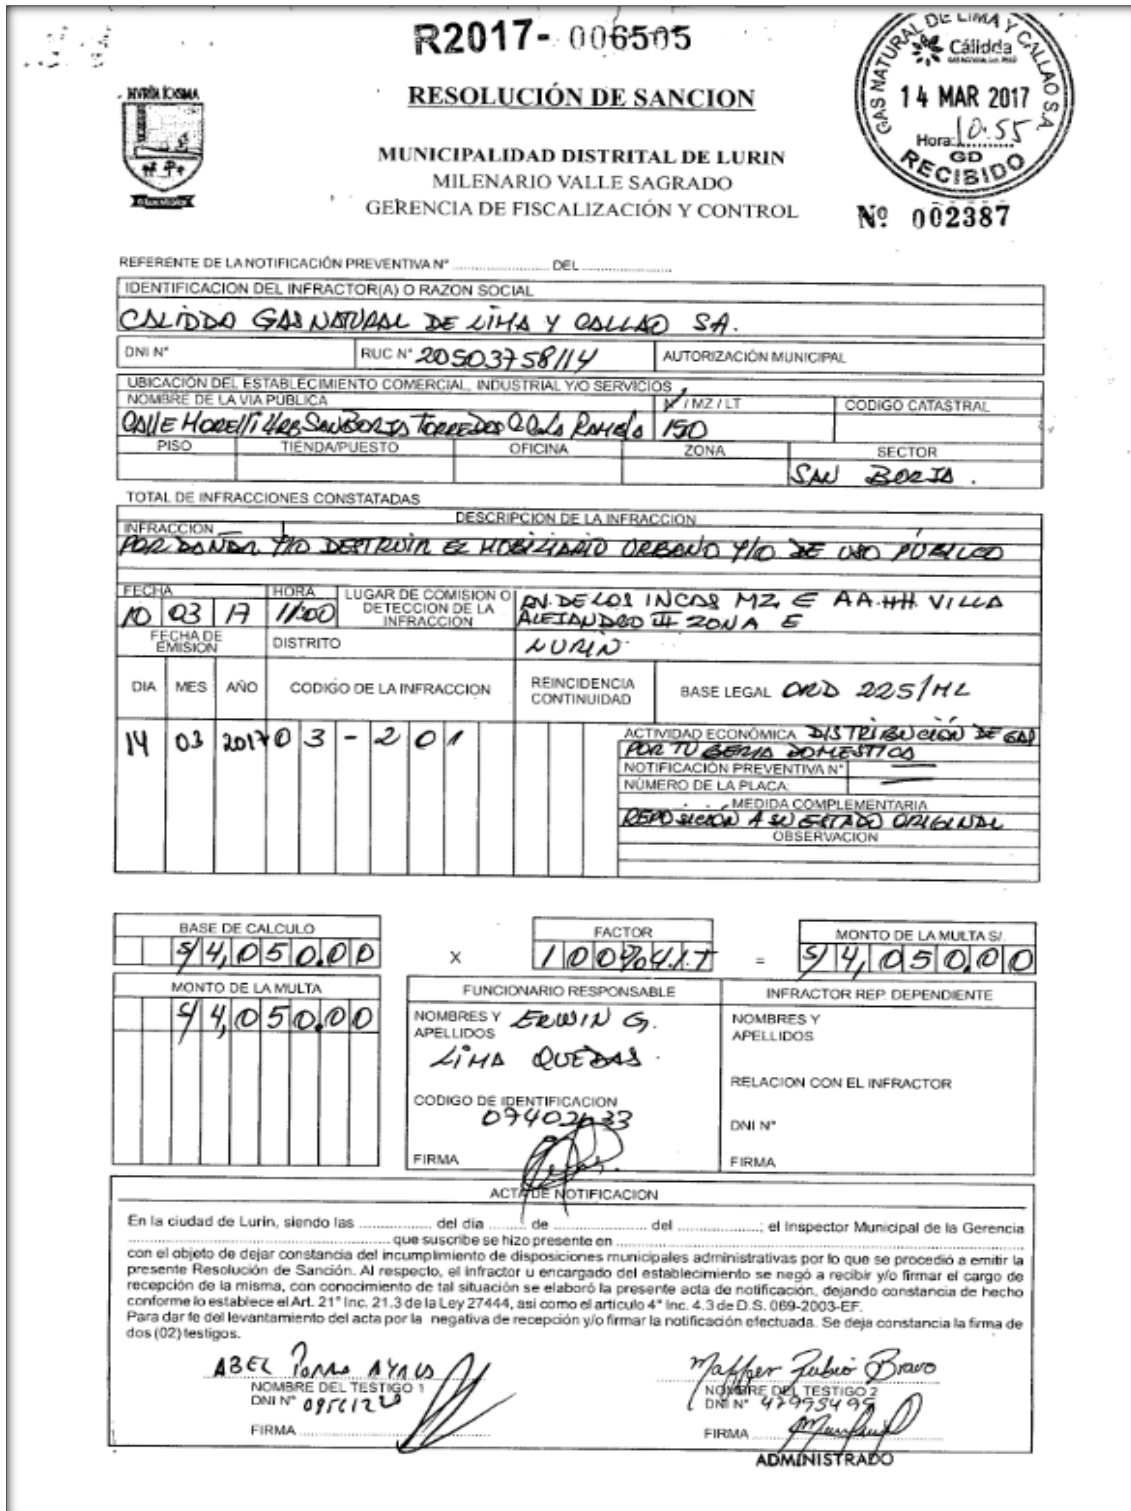 R2017- 006505
RESOLUCIÓN DE SANCION
GAS NATURAL DE LIMA Y CALLAO S.A.
Cálidda
14 MAR 2017
Hora: 10:55
GD
RECIBIDO
MUNICIPALIDAD DISTRITAL DE LURIN
MILENARIO VALLE SAGRADO
GERENCIA DE FISCALIZACIÓN Y CONTROL
Nº 002387
REFERENTE DE LA NOTIFICACIÓN PREVENTIVA N° ........ DEL ........
IDENTIFICACION DEL INFRACTOR(A) O RAZON SOCIAL
CALIDDA GAS NATURAL DE LIMA Y CALLAO SA.
DNI N° RUC N° 20503758114 AUTORIZACIÓN MUNICIPAL
UBICACIÓN DEL ESTABLECIMIENTO COMERCIAL, INDUSTRIAL Y/O SERVICIOS
NOMBRE DE LA VIA PUBLICA N / MZ / LT CODIGO CATASTRAL
CALLE MORELLI URB SAN BORJA 150
PISO TIENDA/PUESTO OFICINA ZONA SECTOR
SAN BORJA.
TOTAL DE INFRACCIONES CONSTATADAS
DESCRIPCION DE LA INFRACCION
INFRACCION
POR DAÑAR Y/O DESTRUIR EL MOBILIARIO URBANO Y/O DE USO PÚBLICO
FECHA HORA LUGAR DE COMISION O DETECCION DE LA INFRACCION
10 03 17 11:00 AV. DE LOS INCAS MZ. E AA.HH. VILLA
ALEJANDRO III ZONA E
FECHA DE EMISION DISTRITO LURIN
DIA MES AÑO CODIGO DE LA INFRACCION REINCIDENCIA CONTINUIDAD BASE LEGAL ORD 225/ML
14 03 2017 03-201
ACTIVIDAD ECONÓMICA DISTRIBUCIÓN DE GAS
POR TUBERIA DOMESTICA
NOTIFICACIÓN PREVENTIVA N° —
NÚMERO DE LA PLACA: —
MEDIDA COMPLEMENTARIA
REPOSICIÓN A SU ESTADO ORIGINAL
OBSERVACION
BASE DE CALCULO FACTOR MONTO DE LA MULTA S/.
S/4,050.00 x 100% U.I.T = S/4,050.00
MONTO DE LA MULTA
S/4,050.00
FUNCIONARIO RESPONSABLE
NOMBRES Y APELLIDOS ERWIN G.
LIMA QUEDAS
CODIGO DE IDENTIFICACION
FIRMA
INFRACTOR REP. DEPENDIENTE
NOMBRES Y APELLIDOS
RELACION CON EL INFRACTOR
DNI N°
FIRMA
ACTA DE NOTIFICACION
En la ciudad de Lurin, siendo las ........ del dia ........ de ........ del ........; el Inspector Municipal de la Gerencia
........ que suscribe se hizo presente en ........
con el objeto de dejar constancia del incumplimiento de disposiciones municipales administrativas por lo que se procedió a emitir la
presente Resolución de Sanción. Al respecto, el infractor u encargado del establecimiento se negó a recibir y/o firmar el cargo de
recepción de la misma, con conocimiento de tal situación se elaboró la presente acta de notificación, dejando constancia de hecho
conforme lo establece el Art. 21° Inc. 21.3 de la Ley 27444, asi como el articulo 4° Inc. 4.3 de D.S. 069-2003-EF.
Para dar fe del levantamiento del acta por la negativa de recepción y/o firmar la notificación efectuada. Se deja constancia la firma de
dos (02) testigos.
ABEL
NOMBRE DEL TESTIGO 1
DNI N°
FIRMA
Rubio Bravo
NOMBRE DEL TESTIGO 2
DNI N° 47993499
FIRMA
ADMINISTRADO